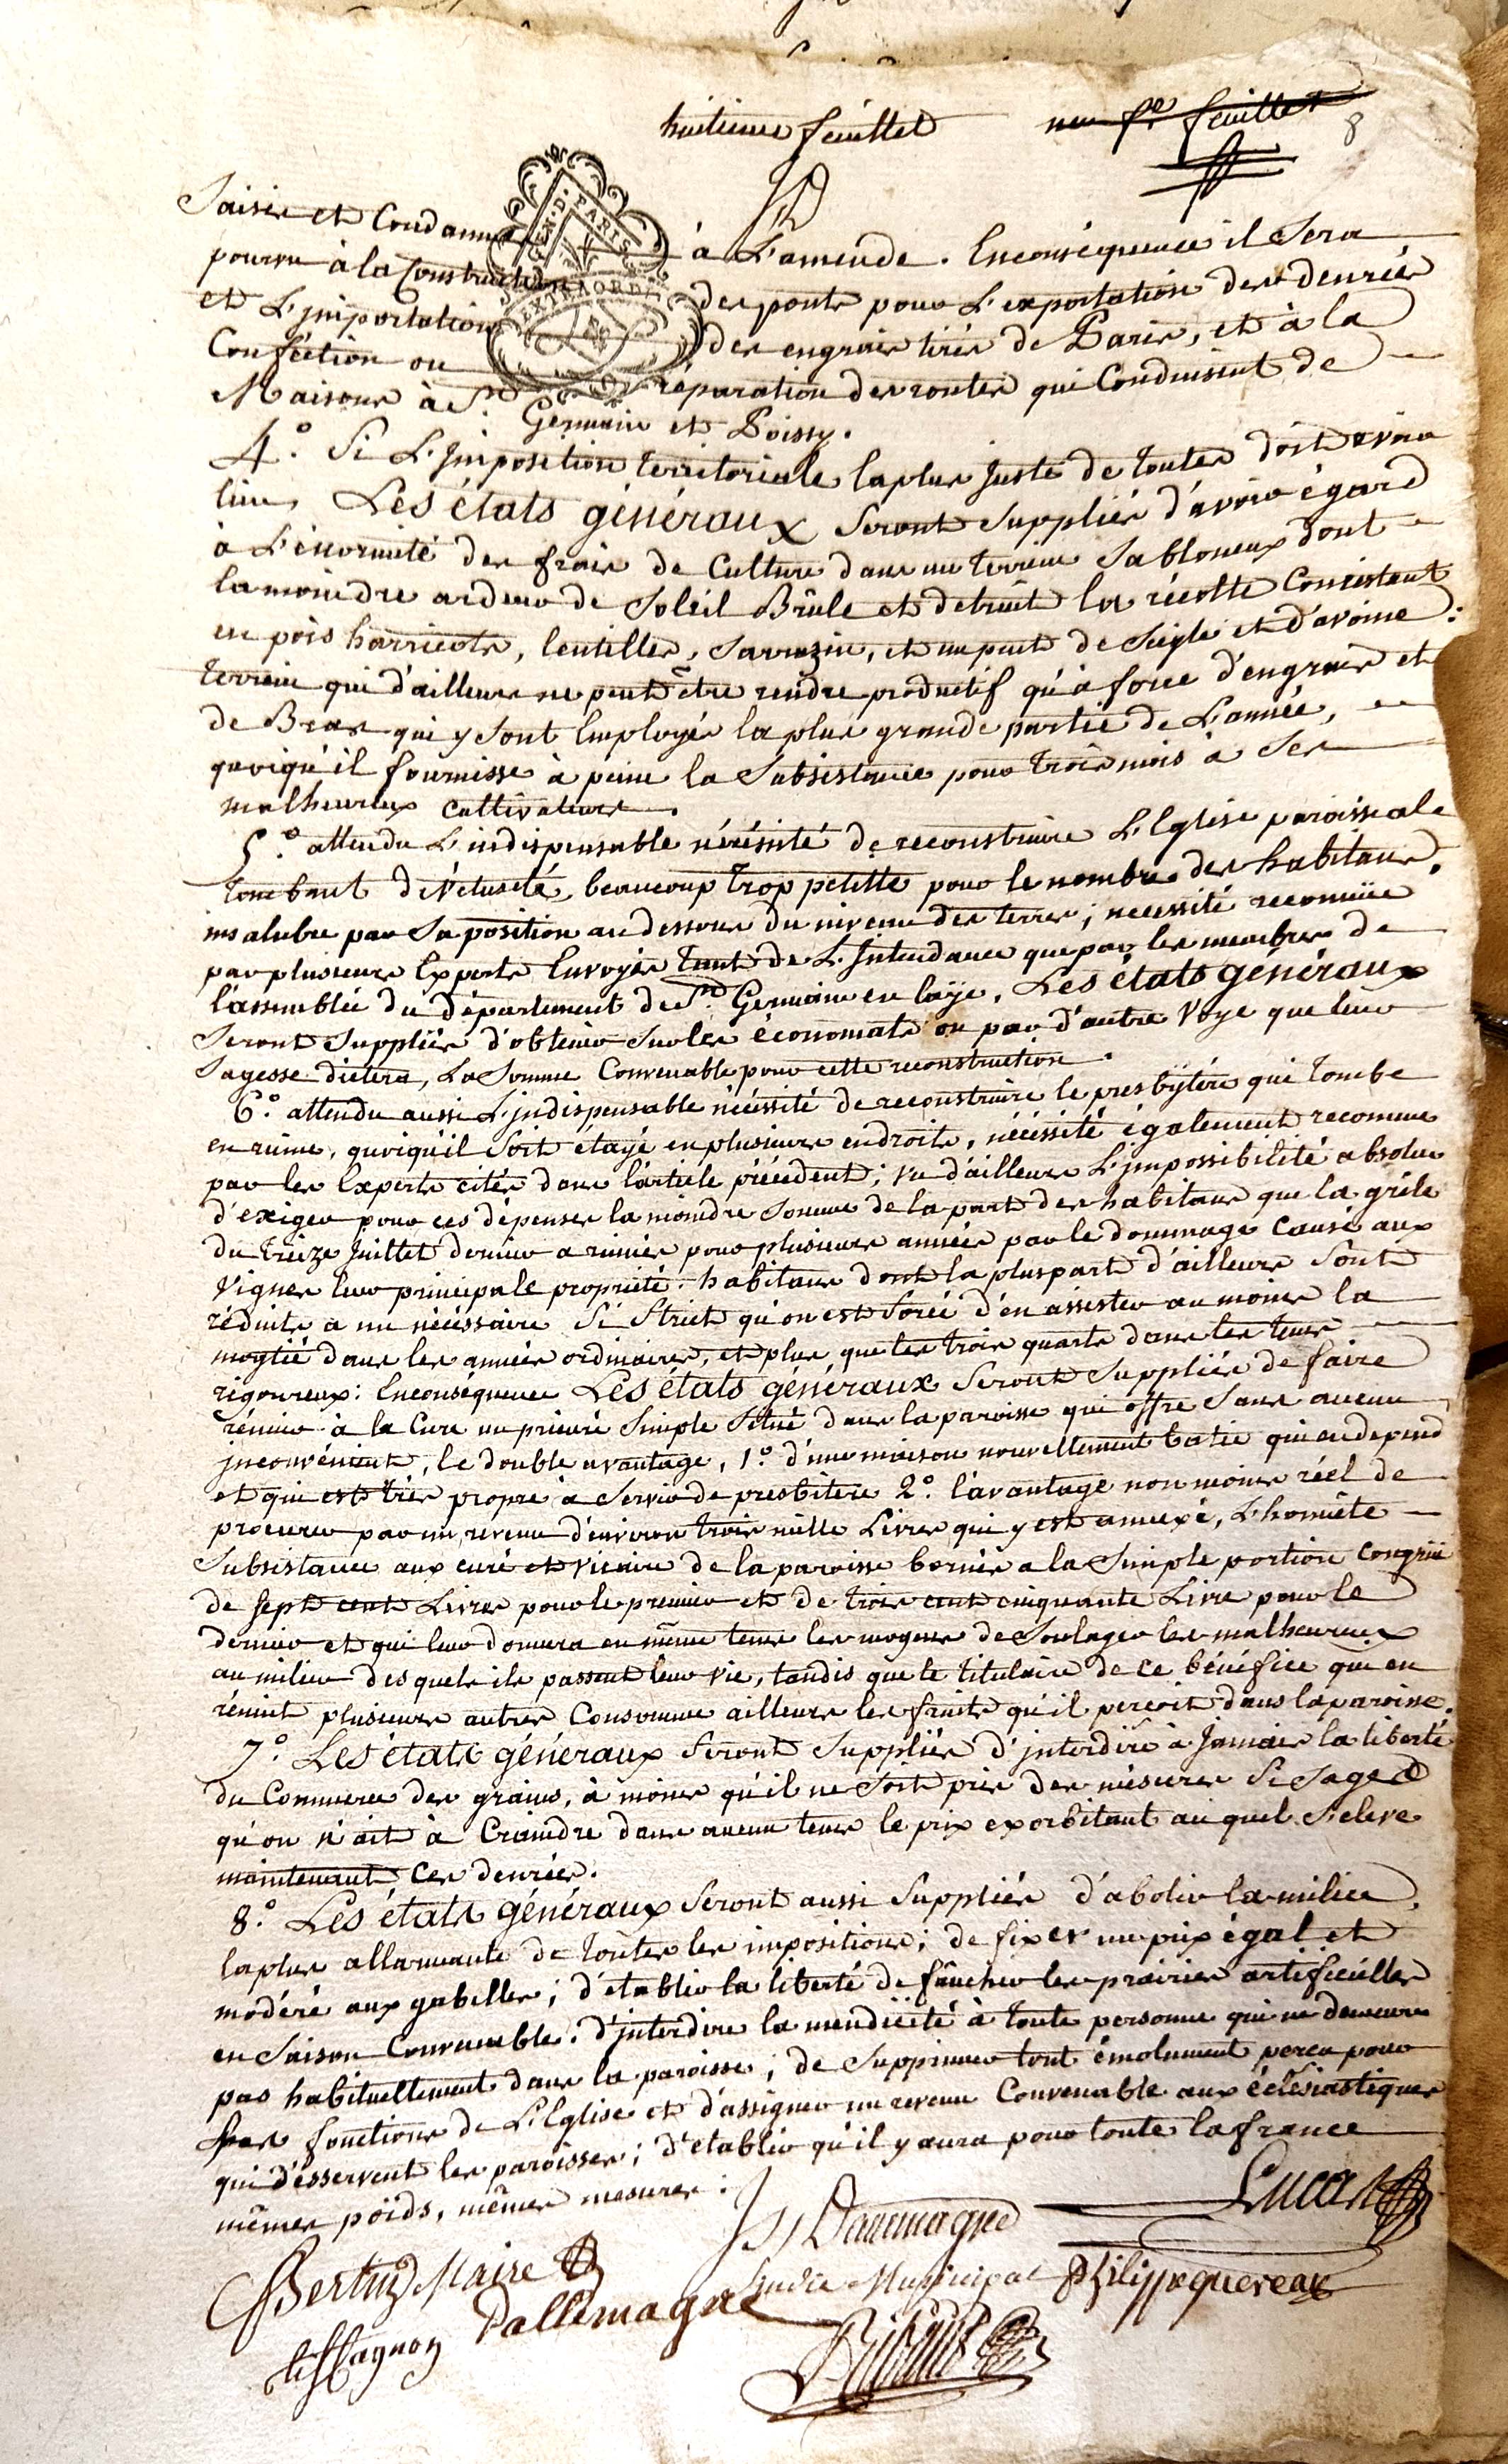 huitieme feuillet
feuillet
8
GEN. D. PARIS
EXTRAORD.
Saisie et Condamné à L'amende. Enconséquence il Sera
pourvu à la Construction des ponts pour L'exportation des denrées
et L'jmportation des engrais tirés de Paris, et à la
Conféction ou réparation des routes qui Conduisent de
Maisons à St. Germain et Poissy.
4.° Si L'Jmposition territoriale la plus juste de toutes doit avoir
lieu, Les états généraux Seront Suppliés d'avoir égard
à L'énormité des frais de Culture dans un terrein Sabloneux dont
la moindre ardeur de Soleil Brûle et detruit la récolte Consistant
en pois harricots, lentilles, Sarrazin, et un peut de Seigle et d'avoine :
terrein qui d'ailleurs ne peut être rendre productif qu'à force d'engrais et
de Bras qui y Sont Employés la plus grande partie de L'année,
quoiqu'il fournisse à peine la Subsistance pour trois mois à Ses
malheureux cultivateurs.
5.° attendu L'indispensable nécéssité de reconstruire L'Eglise paroissiale
tombant de Vétusté, beaucoup trop petitte pour le nombre des habitans,
insalubre par Sa position au dessous du niveau des terres ; necessité reconnüe
par plusieurs Experts Envoyés tant de L'Jntendance que par les membres de
l'assemblée du département de St. Germain en laÿe, Les états généraux
Seront Suppliés d'obtenir Sur les économats ou par d'autre Voye que leur
Sagesse dictera, La Somme Convenable pour cette reconstruction.
6.° attendu aussi L'jndispensable nécéssité de reconstruire le presbÿtère qui tombe
en ruine, quoiqu'il Soit étayé en plusieurs endroits, nécéssité également reconnue
par les Experts cités dans l'article précédent ; vu d'ailleurs L'jmpossibilité absolue
d'exiger pour ces dépenses la moindre Somme de la part des habitans que la grêle
du treize Juillet dernier a ruinés pour plusieurs années par le dommage Causé aux
Vignes leur principale propriété. habitans dont la pluspart d'ailleurs Sont
réduits a un nécéssaire Si Strict qu'on est forcé d'en assister au moins la
moytié dans les années ordinaires, et plus que les trois quarts dans les tems
rigoureux : Enconséquence Les états généraux Seront Suppliés de faire
réunir à la Cure un prieuré Simple Situé dans la paroisse qui offre Sans aucun
jnconvénient, le double avantage, 1.° d'une maison nouvellement batie qui en depend
et qui est très propre à Servir de presbitere 2.° l'avantage non moins réel de
procurer par un revenu d'environ trois mille Livres qui y est annexé, L'honnête
Subsistance aux curé et vicaire de la paroisse bornés a la Simple portion congrüe
de sept cent Livres pour le premier et de trois cent cinquante Livre pour le
dernier et qui leur donnera en même tems les moyens de Soulager les malheureux
au milieu desquels ils passent leur vie, tandis que le titulaire de ce bénéfice qui en
réunit plusieurs autres Consomme ailleurs les fruits qu'il perçoit dans la paroisse.
7.° Les états généraux Seront Suppliés d'jnterdire à Jamais la liberté
du Commerce des grains, à moins qu'il ne Soit pris des mésures Si Sages
qu'on n'ait à Craindre dans aucun tems le prix exorbitant au quel S'eleve
maintenant ces denrées.
8.° Les états généraux Seront aussi Suppliés d'abolir la milice,
la plus allarmante de toutes les impositions ; de fixer un prix égal et
modéré aux gabelles ; d'etablir la liberté de fâucher les prairies artificielles
en Saison Convenable. d'jnterdire la mendicité à toute personne qui ne demeure
pas habituellement dans la paroisse ; de Supprimer tout émolument percu pour
fonctions de L'Eglise et d'assigner un revenu Convenable aux éclésiastiques
qui d'ésservent les paroisses ; d'etablir qu'il y aura pour toute la france
mêmes poids, mêmes mesures.
Dallemagne
Lucas
Bertin Maire
Sindic Municipal
Philippe quereau
Dallemagne